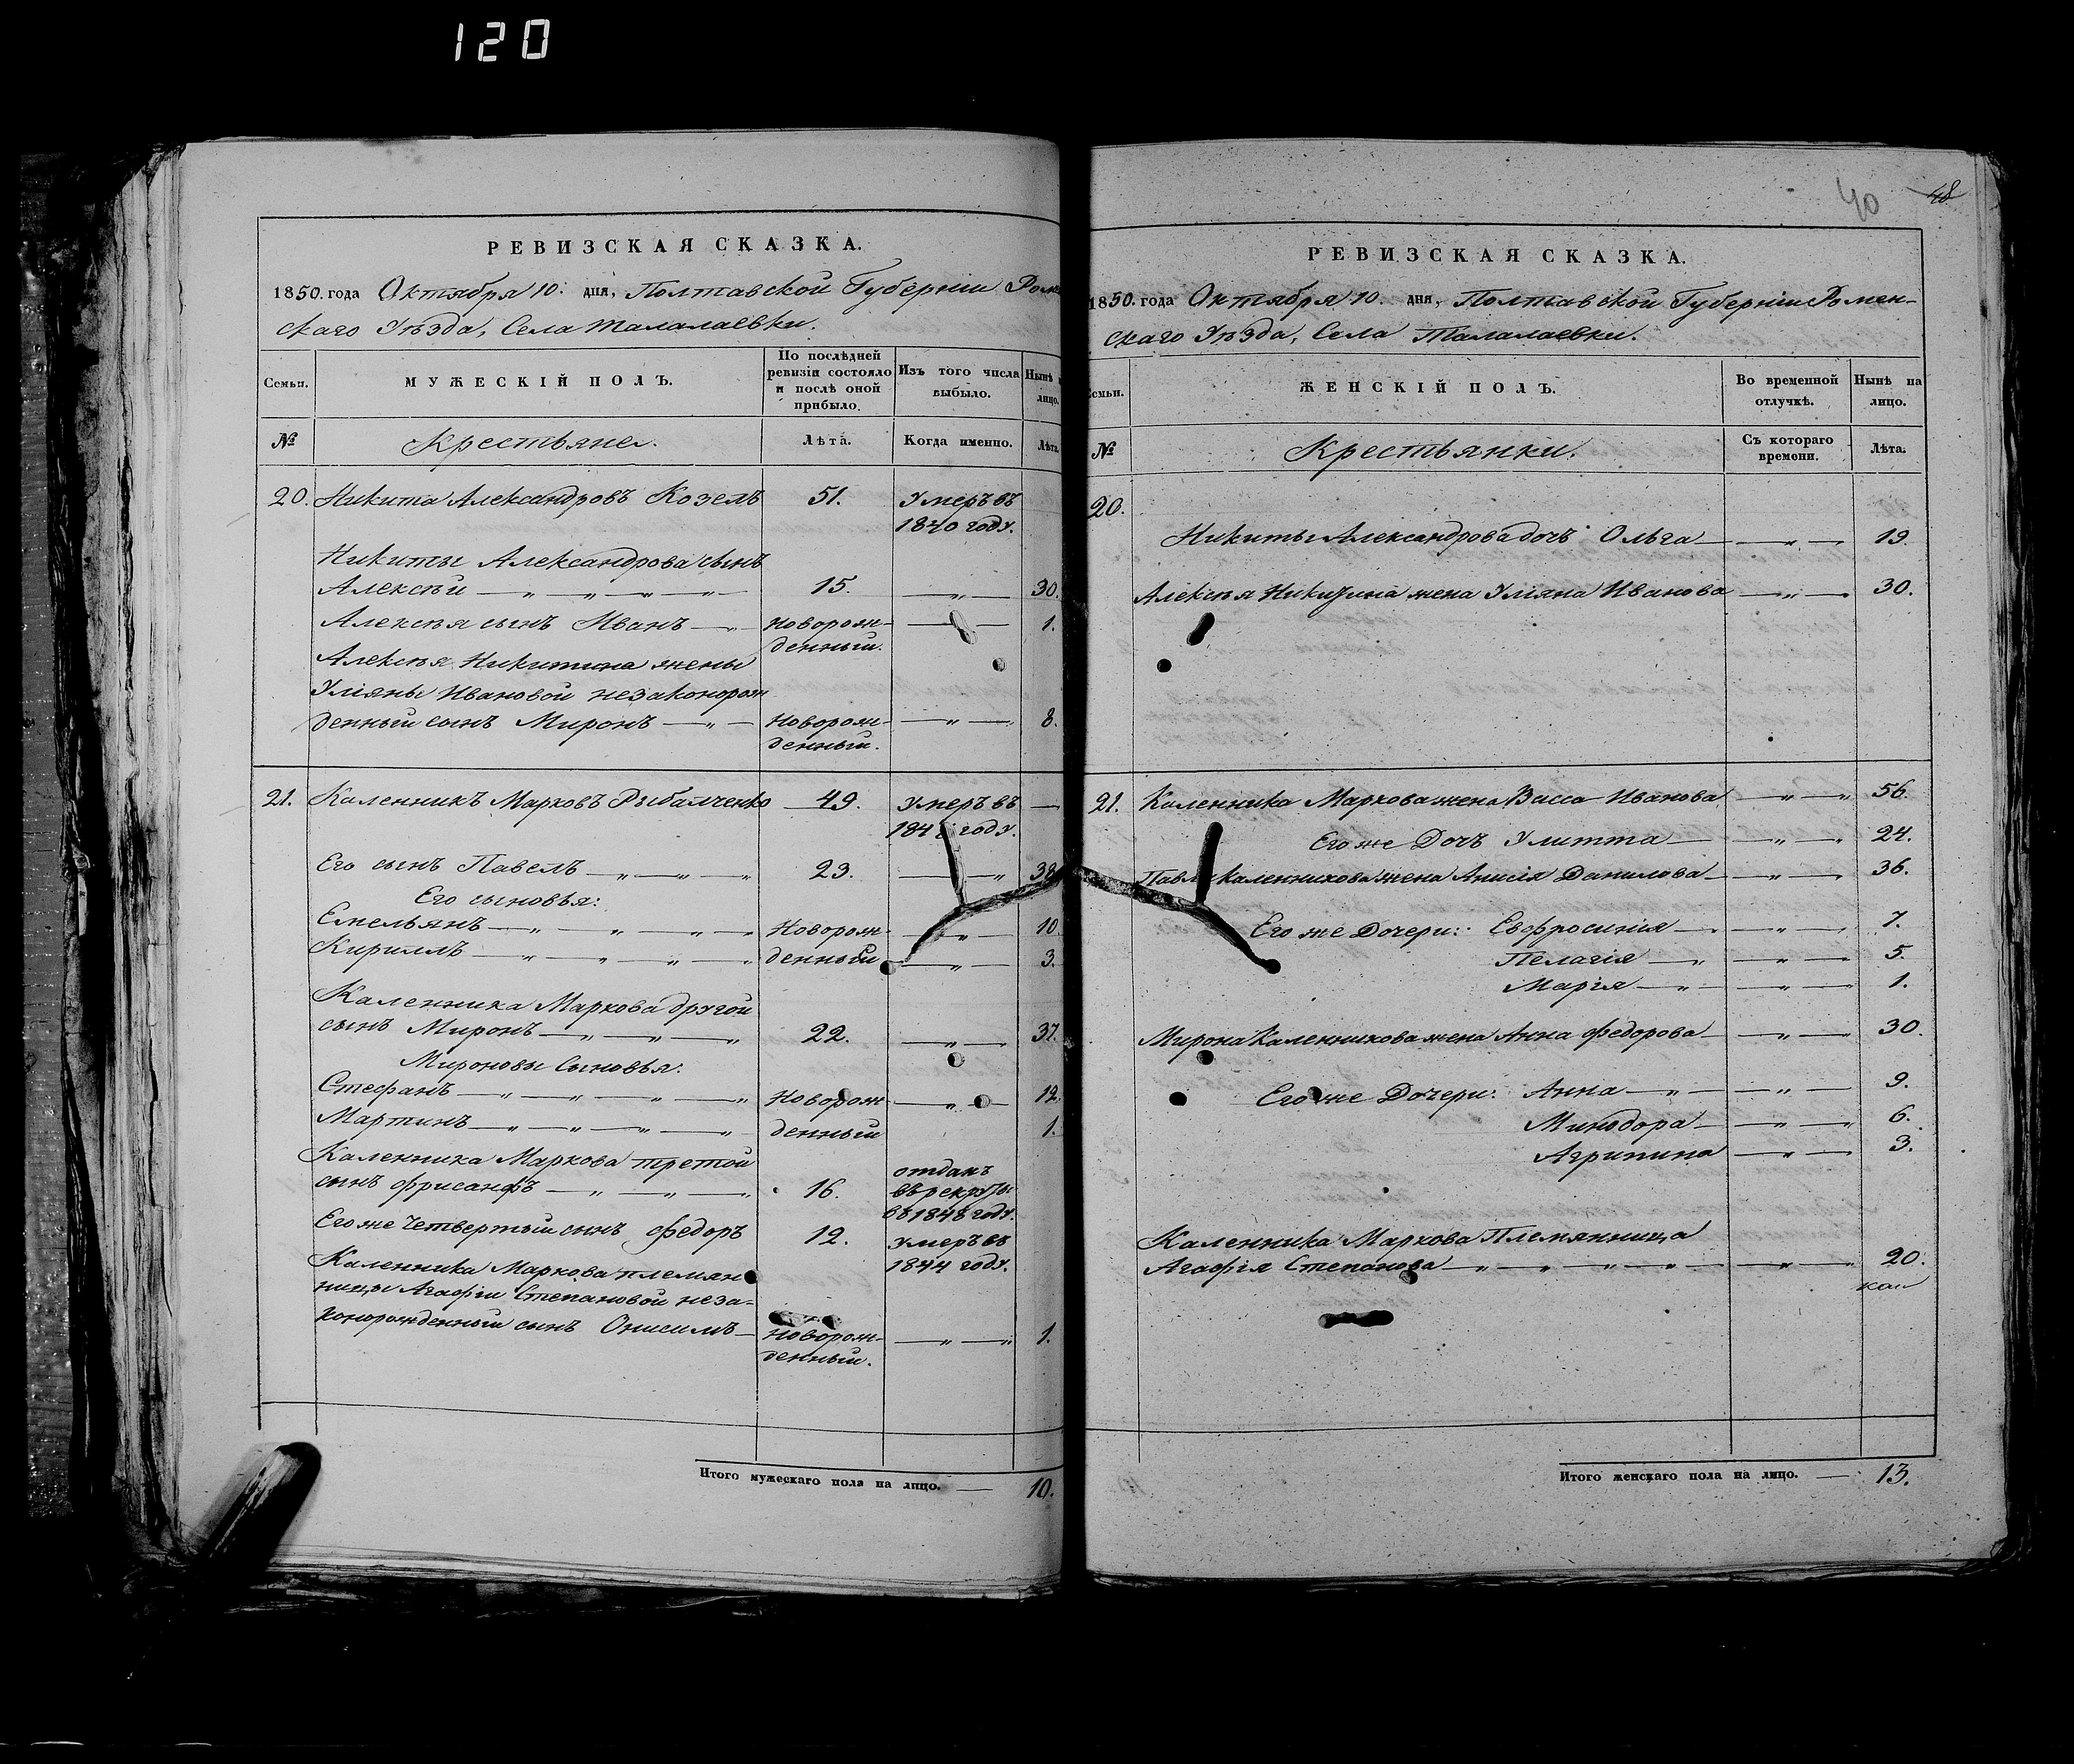 120
РЕВИЗСКАЯ СКАЗКА.
1850. года Октября 10. дня, Полтавской Губерніи Ромен
скаго Уѣзда, Села Талалаевки.
Семьи.
МУЖЕСКІЙ ПОЛЪ.
По послѣдней ревизіи состояло и послѣ оной прибыло.
Изъ того числа выбыло.
Нынѣ на лицо.
№
Крестьяне.
Лѣта.
Когда именно.
Лѣта.
20. Никита Александровъ Козелъ 51. Умеръ въ
1840 году.
Никиты Александрова сынъ
Алексѣй — „ — „ — „ — „ — 15. — „ — 30.
Алексѣя сынъ Иванъ — „ Новорож- — — 1.
денный.
Алексѣя Никитина жены
Уліяны Ивановой незаконорож
денный сынъ Миронъ — „ — Новорож- — „ — 8.
денный.
21. Каленникъ Марковъ Рыбалченко — 49. Умеръ въ —
184 году.
Его сынъ Павелъ — „ — „ — „ 23. — „ 38
Его сыновья:
Емельянъ — „ — „ — „ — „ Новорож- — „ — 10
Кириллъ — „ — „ — „ — „ денный — „ — 3.
Каленника Маркова другой
сынъ Миронъ — „ — „ — „ 22. — „ — 37.
Мироновы Сыновья:
Стефанъ — „ — „ — „ — „ Новорож — „ — 12.
Мартинъ — „ — „ — „ — „ денный 1.
Каленника Маркова третой
сынъ Фрисанфъ — „ — „ — „ 16. отданъ
въ рекруты
въ 1848 году.
Его же Четвертый сынъ Федоръ 12. Умеръ въ
1844 году.
Каленника Маркова племян
ницы Агафіи Степановой неза-
конорожденный сынъ Онисимъ — Новорож- — „ — „ 1.
денный.
Итого мужескаго пола на лицо. — 10.
40 48
РЕВИЗСКАЯ СКАЗКА.
1850. года Октября 10. дня, Полтавской Губерніи Ромен-
скаго Уѣзда, Села Талалаевки.
Семьи.
ЖЕНСКІЙ ПОЛЪ.
Во временной отлучкѣ.
Нынѣ на лицо.
№
Крестьянки.
Съ котораго времени.
Лѣта.
20.
Никиты Александрова дочъ Ольга — — „ — 19.
Алексѣя Никитина жена Уліяна Иванова — „ — 30.
21. Каленника Маркова жена Васса Иванова — „ — „ 56.
Его же Дочъ Улитта — — „ — „ 24.
Павла Каленникова жена Анисія Данилова — — „ — 36.
Его же Дочери: Евфросинія — „ — „ 7.
Пелагія — „ — „ — 5.
Марія — „ — „ — „ 1.
Мирона Каленникова жена Анна Федорова — — „ — 30.
Его же Дочери: Анна — „ — — „ 9.
Минодора — — „ — „ 6.
Агрипина — „ — 3.
Каленника Маркова Племянница
Агафія Степанова „ — „ — „ — „ — „ — „ — „ 20.
Итого женскаго пола на лицо. — 13.